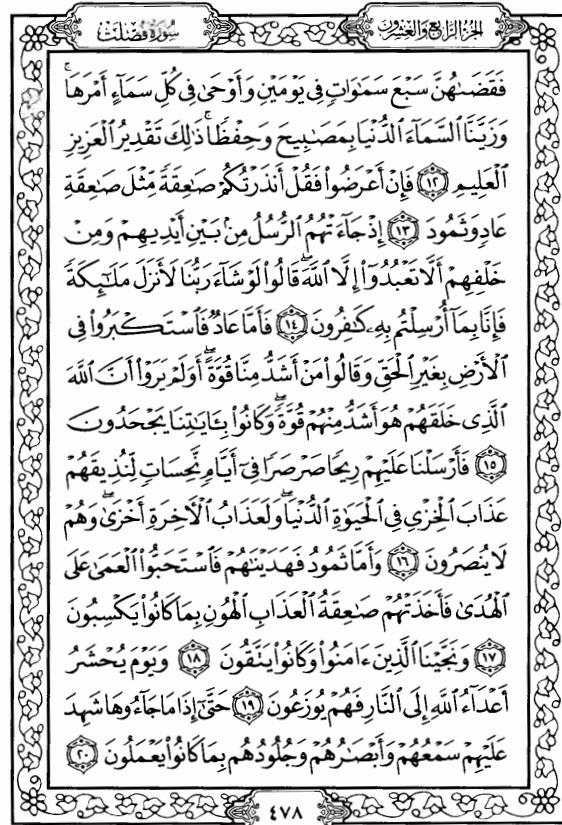 الجزء الرابع والعشرون سورة فصلت
فَقَضَىٰهُنَّ سَبْعَ سَمَٰوَاتٍ فِي يَوْمَيْنِ وَأَوْحَىٰ فِي كُلِّ سَمَآءٍ أَمْرَهَا ۚ
وَزَيَّنَّا ٱلسَّمَآءَ ٱلدُّنْيَا بِمَصَٰبِيحَ وَحِفْظًا ۚ ذَٰلِكَ تَقْدِيرُ ٱلْعَزِيزِ
ٱلْعَلِيمِ ١٢ فَإِنْ أَعْرَضُوا۟ فَقُلْ أَنذَرْتُكُمْ صَٰعِقَةً مِّثْلَ صَٰعِقَةِ
عَادٍ وَثَمُودَ ١٣ إِذْ جَآءَتْهُمُ ٱلرُّسُلُ مِنۢ بَيْنِ أَيْدِيهِمْ وَمِنْ
خَلْفِهِمْ أَلَّا تَعْبُدُوٓا۟ إِلَّا ٱللَّهَ ۖ قَالُوا۟ لَوْ شَآءَ رَبُّنَا لَأَنزَلَ مَلَٰٓئِكَةً
فَإِنَّا بِمَآ أُرْسِلْتُم بِهِۦ كَٰفِرُونَ ١٤ فَأَمَّا عَادٌ فَٱسْتَكْبَرُوا۟ فِي
ٱلْأَرْضِ بِغَيْرِ ٱلْحَقِّ وَقَالُوا۟ مَنْ أَشَدُّ مِنَّا قُوَّةً ۖ أَوَلَمْ يَرَوْا۟ أَنَّ ٱللَّهَ
ٱلَّذِي خَلَقَهُمْ هُوَ أَشَدُّ مِنْهُمْ قُوَّةً ۖ وَكَانُوا۟ بِـَٔايَٰتِنَا يَجْحَدُونَ
١٥ فَأَرْسَلْنَا عَلَيْهِمْ رِيحًا صَرْصَرًا فِيٓ أَيَّامٍ نَّحِسَاتٍ لِّنُذِيقَهُمْ
عَذَابَ ٱلْخِزْيِ فِي ٱلْحَيَوٰةِ ٱلدُّنْيَا ۖ وَلَعَذَابُ ٱلْءَاخِرَةِ أَخْزَىٰ ۖ وَهُمْ
لَا يُنصَرُونَ ١٦ وَأَمَّا ثَمُودُ فَهَدَيْنَٰهُمْ فَٱسْتَحَبُّوا۟ ٱلْعَمَىٰ عَلَى
ٱلْهُدَىٰ فَأَخَذَتْهُمْ صَٰعِقَةُ ٱلْعَذَابِ ٱلْهُونِ بِمَا كَانُوا۟ يَكْسِبُونَ
١٧ وَنَجَّيْنَا ٱلَّذِينَ ءَامَنُوا۟ وَكَانُوا۟ يَتَّقُونَ ١٨ وَيَوْمَ يُحْشَرُ
أَعْدَآءُ ٱللَّهِ إِلَى ٱلنَّارِ فَهُمْ يُوزَعُونَ ١٩ حَتَّىٰٓ إِذَا مَا جَآءُوهَا شَهِدَ
عَلَيْهِمْ سَمْعُهُمْ وَأَبْصَٰرُهُمْ وَجُلُودُهُم بِمَا كَانُوا۟ يَعْمَلُونَ ٢٠
٤٧٨